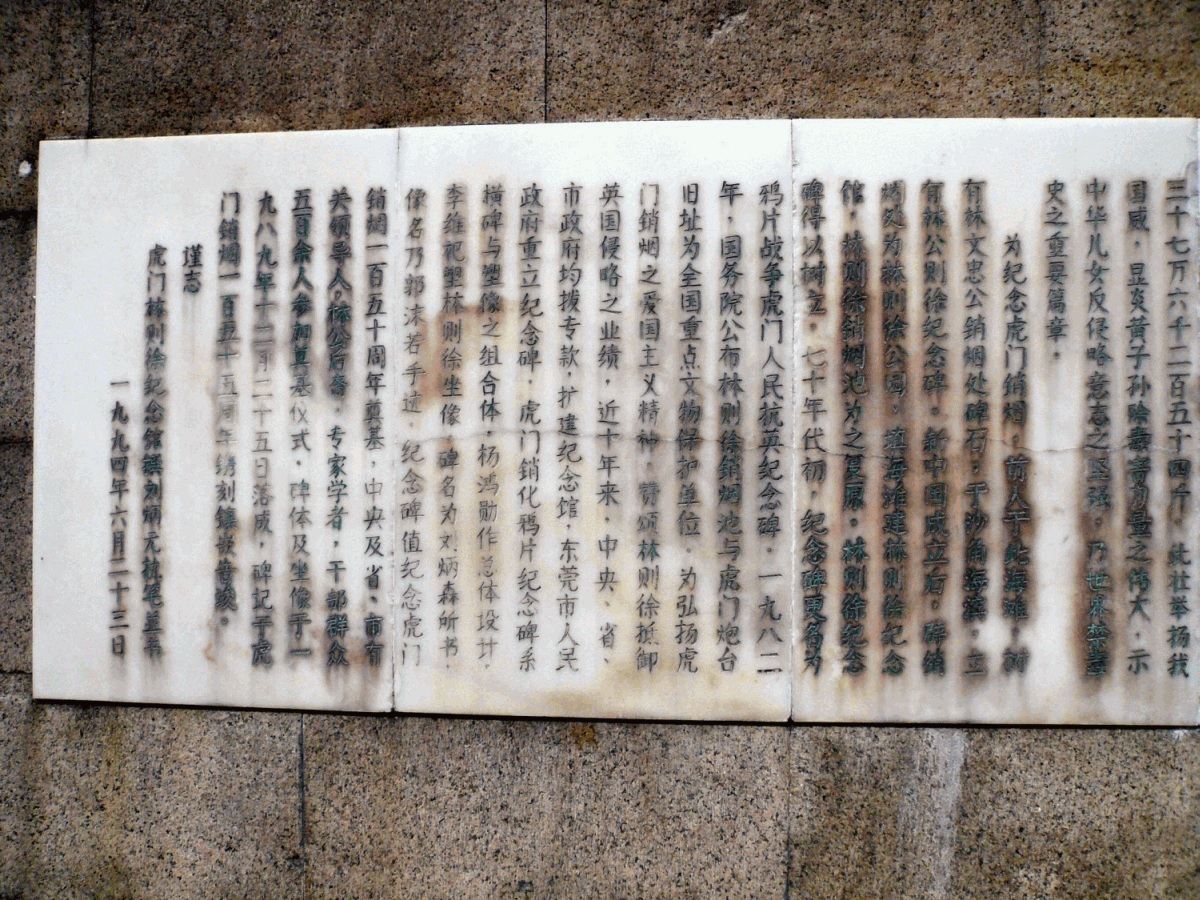 三十七万六千二百五十四斤，此壮举扬我
国威，显炎黄子孙除毒禁力量之伟大，示
中华儿女反侵略意志之坚强，乃世界禁毒
史之重要篇章。
为纪念虎门销烟，前人于此海滩，树
有林文忠公销烟处碑石；于沙角海滨，立
有林公则徐纪念碑。新中国成立后，碑销
烟处为林则徐公园，填海滩建林则徐纪念
馆，林则徐销烟池为之复原，林则徐纪念
碑得以树立。七十年代初，纪念碑更名为
鸦片战争虎门人民抗英纪念碑。一九八二
年，国务院公布林则徐销烟池与虎门炮台
旧址为全国重点文物保护单位。为弘扬虎
门销烟之爱国主义精神，赞颂林则徐抵御
英国侵略之业绩，近十年来，中央、省、
市政府均拨专款，扩建纪念馆，东莞市人民
政府重立纪念碑，虎门销化鸦片纪念碑系
横碑与塑像之组合体，杨鸿勋作总体设计，
李维祀塑林则徐坐像，碑名为刘炳森所书，
像名乃郭沫若手迹。纪念碑值纪念虎门
销烟一百五十周年奠基，中央及省、市有
关领导人，林公后裔，专家学者，干部群众
五百余人参加奠基仪式，碑体及坐像于一
九八九年十二月二十五日落成，碑记于虎
门销烟一百五十五周年镌刻镶嵌告竣。
谨志
虎门林则徐纪念馆撰刘炳元植笔并书
一九九四年六月二十三日